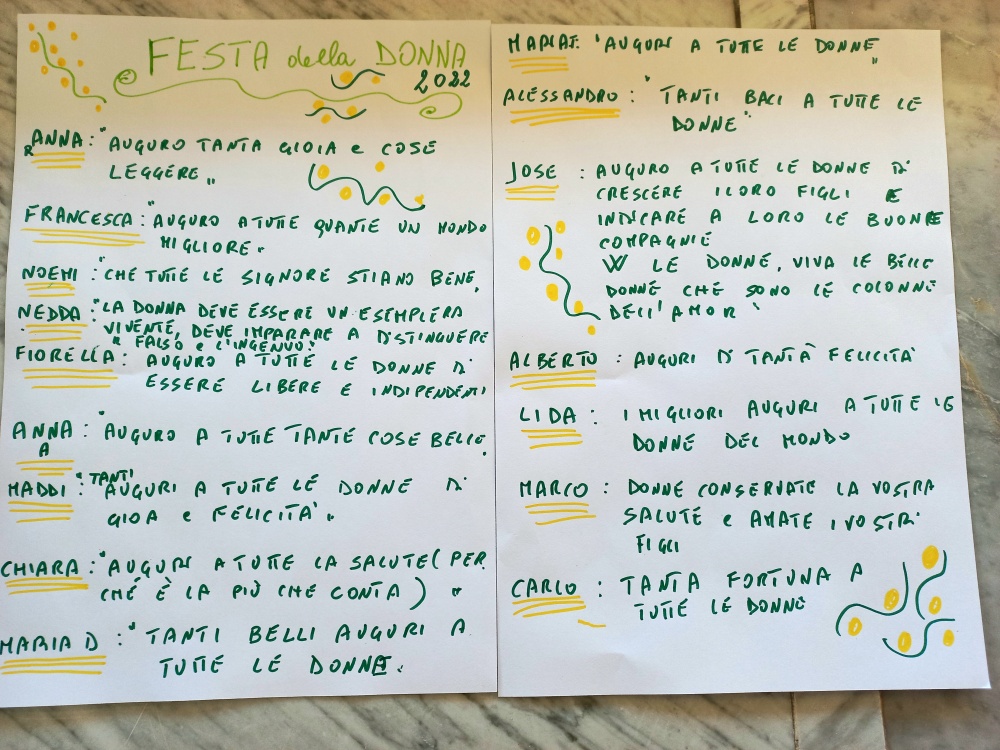 FESTA della DONNA
2022
ANNA R: "AUGURO TANTA GIOIA e COSE
LEGGERE"
FRANCESCA: "AUGURO A TUTTE QUANTE UN MONDO
MIGLIORE"
NOEMI: "CHE TUTTE LE SIGNORE STIANO BENE"
NEDDA: "LA DONNA DEVE ESSERE UN ESEMPLERA
VIVENTE, DEVE IMPARARE A DISTINGUERE
IL FALSO e L'INGENUO"
FIORELLA: AUGURO A TUTTE LE DONNE DI
ESSERE LIBERE E INDIPENDENTI
ANNA A: "AUGURO A TUTTE TANTE COSE BELLE"
MADDI: "TANTI AUGURI A TUTTE LE DONNE DI
GIOA e FELICITÀ"
CHIARA: "AUGURI A TUTTE LA SALUTE (PER
CHÉ È LA PIÙ CHE CONTA)"
MARIA D: "TANTI BELLI AUGURI A
TUTTE LE DONNE"
MARIA T: "AUGURI A TUTTE LE DONNE"
ALESSANDRO: "TANTI BACI A TUTTE LE
DONNE"
JOSE: AUGURO A TUTTE LE DONNE DI
CRESCERE I LORO FIGLI E
INDICARE A LORO LE BUONE
COMPAGNIE
W LE DONNE, VIVA LE BELLE
DONNE CHE SONO LE COLONNE
DELL'AMOR"
ALBERTO: AUGURI DI TANTA FELICITÀ
LIDA: I MIGLIORI AUGURI A TUTTE LE
DONNE DEL MONDO
MARCO: DONNE CONSERVATE LA VOSTRA
SALUTE e AMATE I VOSTRI
FIGLI
CARLO: TANTA FORTUNA A
TUTTE LE DONNE